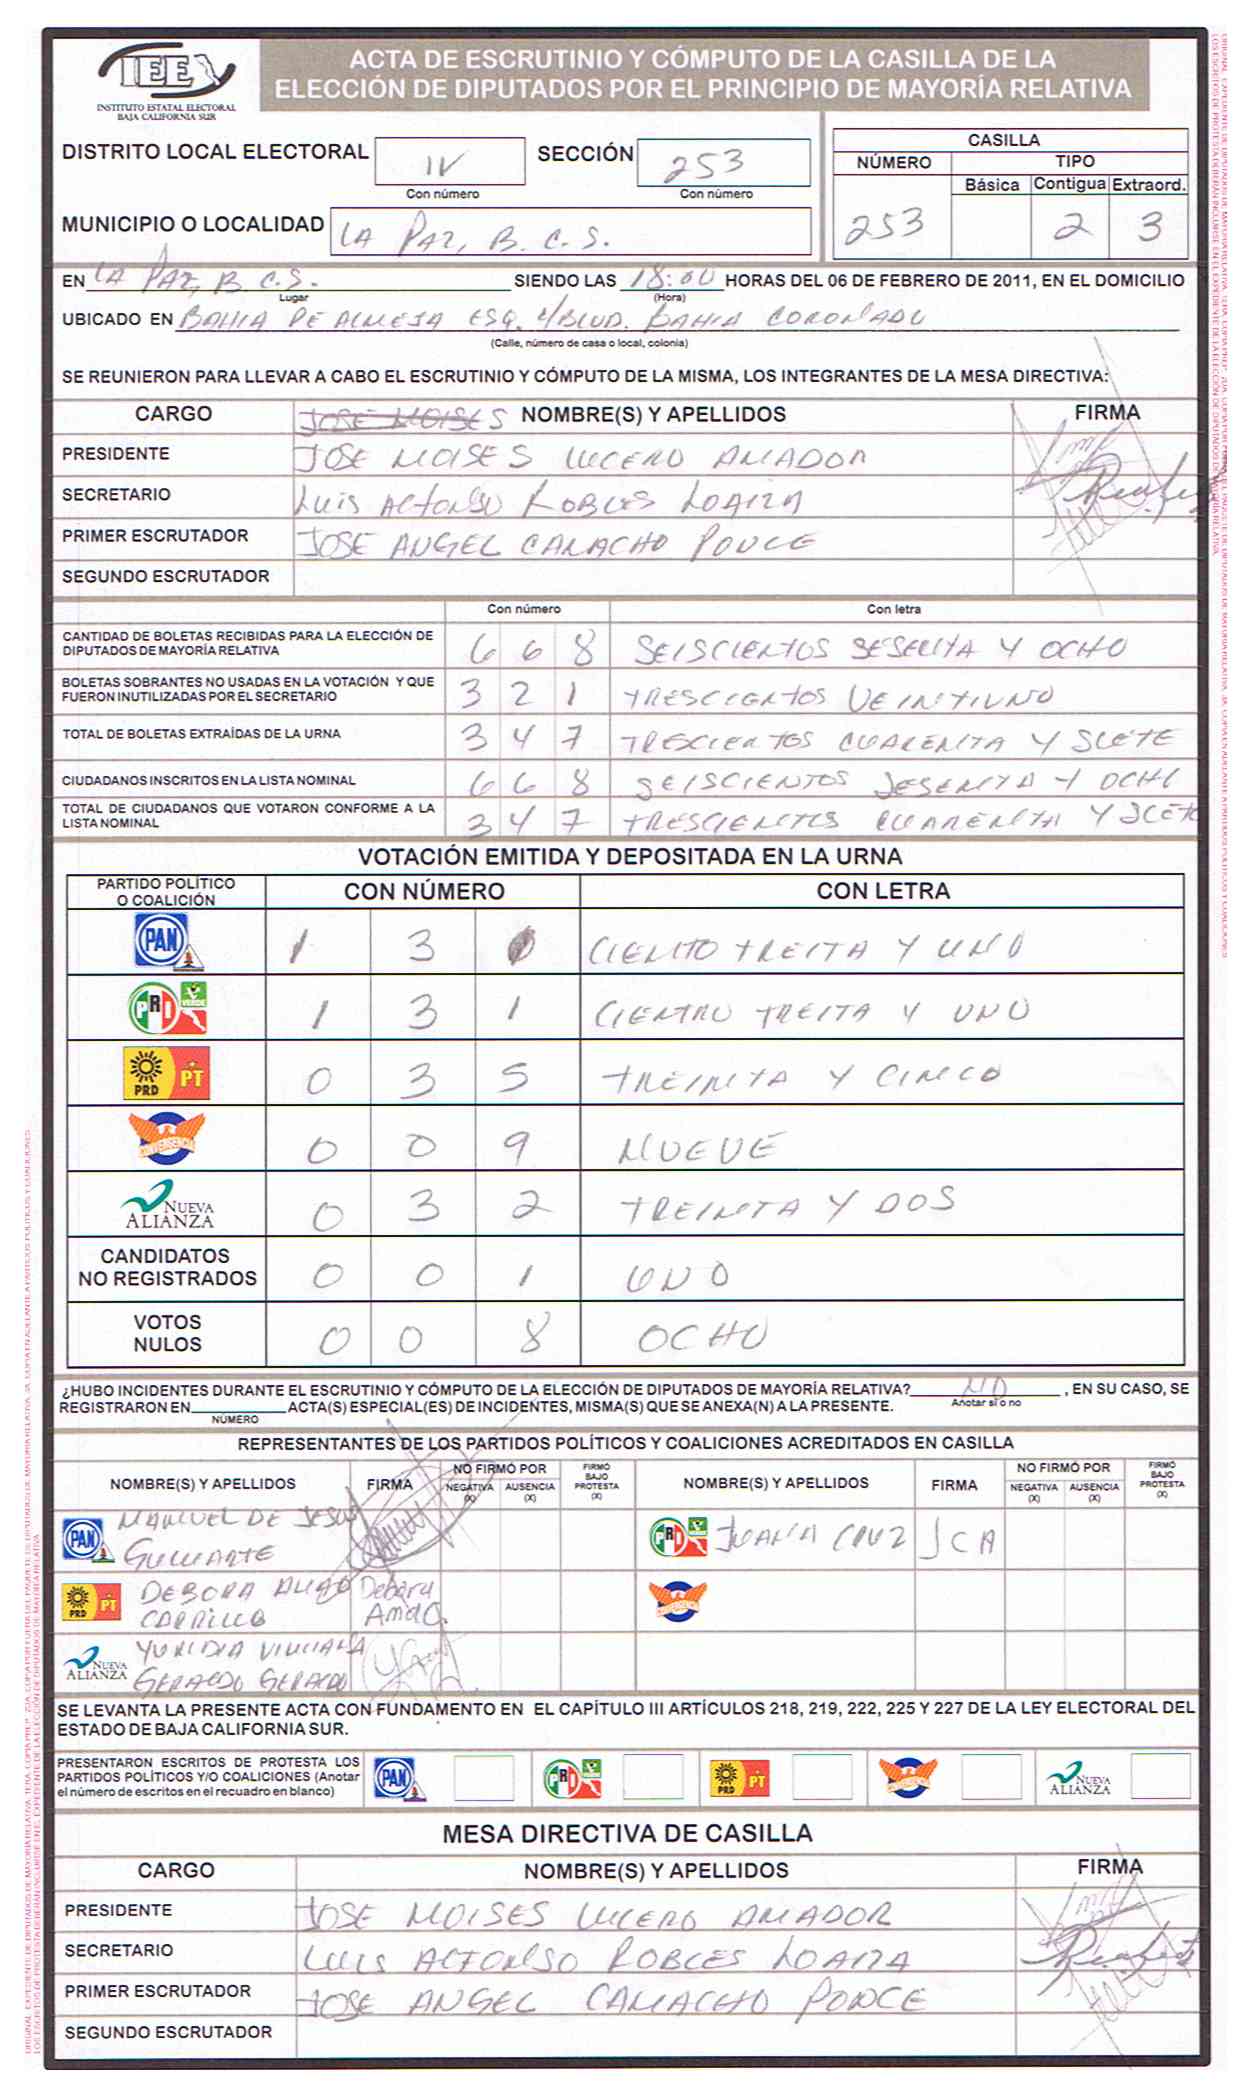 IEE
INSTITUTO ESTATAL ELECTORAL
BAJA CALIFORNIA SUR
ACTA DE ESCRUTINIO Y CÓMPUTO DE LA CASILLA DE LA
ELECCIÓN DE DIPUTADOS POR EL PRINCIPIO DE MAYORÍA RELATIVA
DISTRITO LOCAL ELECTORAL IV SECCIÓN 253
Con número Con número
MUNICIPIO O LOCALIDAD LA PAZ, B. C. S.
CASILLA
NÚMERO TIPO
Básica Contigua Extraord.
253 2 3
EN LA PAZ, B. C. S. SIENDO LAS 18:00 HORAS DEL 06 DE FEBRERO DE 2011, EN EL DOMICILIO
Lugar (Hora)
UBICADO EN BAHIA DE ALMEJA ESQ. 4/BLUD. BAHIA CORONADO
(Calle, número de casa o local, colonia)
SE REUNIERON PARA LLEVAR A CABO EL ESCRUTINIO Y CÓMPUTO DE LA MISMA, LOS INTEGRANTES DE LA MESA DIRECTIVA:
CARGO JOSE MOISES NOMBRE(S) Y APELLIDOS FIRMA
PRESIDENTE JOSE MOISES LUCERO AMADOR
SECRETARIO LUIS ALFONSO ROBLES LOAIZA
PRIMER ESCRUTADOR JOSE ANGEL CAMACHO PONCE
SEGUNDO ESCRUTADOR
Con número Con letra
CANTIDAD DE BOLETAS RECIBIDAS PARA LA ELECCIÓN DE
DIPUTADOS DE MAYORÍA RELATIVA 6 6 8 SEISCIENTOS SESENTA Y OCHO
BOLETAS SOBRANTES NO USADAS EN LA VOTACIÓN Y QUE
FUERON INUTILIZADAS POR EL SECRETARIO 3 2 1 TRESCIENTOS VEINTIUNO
TOTAL DE BOLETAS EXTRAÍDAS DE LA URNA 3 4 7 TRESCIENTOS CUARENTA Y SIETE
CIUDADANOS INSCRITOS EN LA LISTA NOMINAL 6 6 8 SEISCIENTOS SESENTA Y OCHO
TOTAL DE CIUDADANOS QUE VOTARON CONFORME A LA
LISTA NOMINAL 3 4 7 TRESCIENTOS CUARENTA Y SIETE
VOTACIÓN EMITIDA Y DEPOSITADA EN LA URNA
PARTIDO POLÍTICO
O COALICIÓN CON NÚMERO CON LETRA
PAN 1 3 CIENTO TREITA Y UNO
PRI VERDE 1 3 1 CIENTRO TREITA Y UNO
PRD PT 0 3 5 TREINTA Y CINCO
CONVERGENCIA 0 0 9 NUEVE
NUEVA ALIANZA 0 3 2 TREINTA Y DOS
CANDIDATOS
NO REGISTRADOS 0 0 1 UNO
VOTOS
NULOS 0 0 8 OCHO
¿HUBO INCIDENTES DURANTE EL ESCRUTINIO Y CÓMPUTO DE LA ELECCIÓN DE DIPUTADOS DE MAYORÍA RELATIVA? NO , EN SU CASO, SE
Anotar sí o no
REGISTRARON EN ACTA(S) ESPECIAL(ES) DE INCIDENTES, MISMA(S) QUE SE ANEXA(N) A LA PRESENTE.
NÚMERO
REPRESENTANTES DE LOS PARTIDOS POLÍTICOS Y COALICIONES ACREDITADOS EN CASILLA
NOMBRE(S) Y APELLIDOS FIRMA NO FIRMÓ POR NEGATIVA (X) AUSENCIA (X) FIRMÓ BAJO PROTESTA (X) NOMBRE(S) Y APELLIDOS FIRMA NO FIRMÓ POR NEGATIVA (X) AUSENCIA (X) FIRMÓ BAJO PROTESTA (X)
PAN MANUEL DE JESUS PRI VERDE JUANA CRUZ JCA
PRD PT DEBORA AMAO Debora
CARRILLO Amao. CONVERGENCIA
NUEVA ALIANZA YURIDIA VIVIANA
GERALDO GERALDO
SE LEVANTA LA PRESENTE ACTA CON FUNDAMENTO EN EL CAPÍTULO III ARTÍCULOS 218, 219, 222, 225 Y 227 DE LA LEY ELECTORAL DEL
ESTADO DE BAJA CALIFORNIA SUR.
PRESENTARON ESCRITOS DE PROTESTA LOS
PARTIDOS POLÍTICOS Y/O COALICIONES (Anotar
el número de escritos en el recuadro en blanco)
PAN PRI VERDE PRD PT CONVERGENCIA NUEVA ALIANZA
MESA DIRECTIVA DE CASILLA
CARGO NOMBRE(S) Y APELLIDOS FIRMA
PRESIDENTE JOSE MOISES LUCERO AMADOR
SECRETARIO LUIS ALFONSO ROBLES LOAIZA
PRIMER ESCRUTADOR JOSE ANGEL CAMACHO PONCE
SEGUNDO ESCRUTADOR